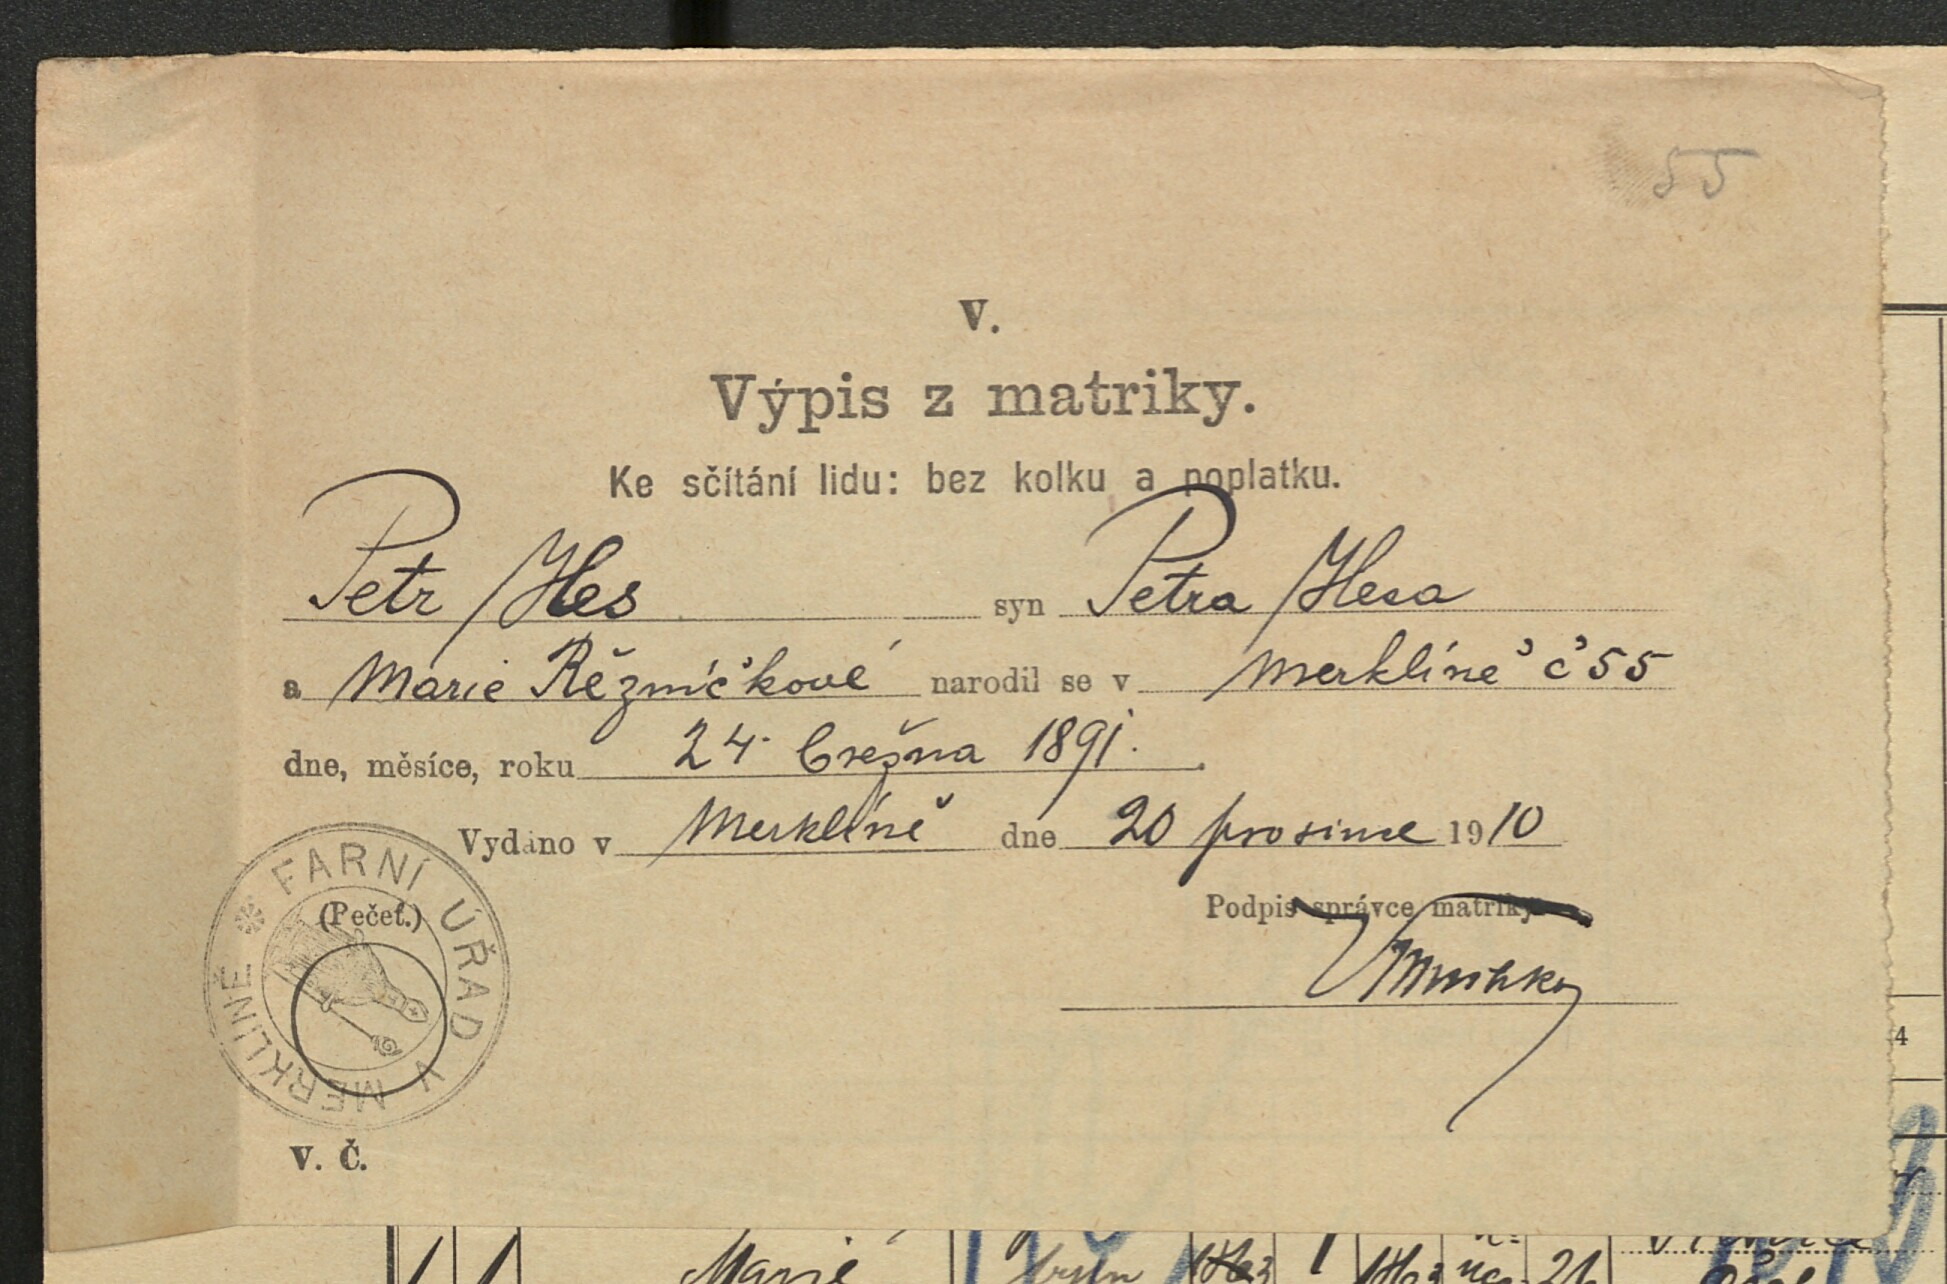 55
V.
Výpis z matriky.
Ke sčítání lidu: bez kolku a poplatku.
Petr Hes syn Petra Hesa
a Marie Řězníčkové narodil se v Merklíně č 55
dne, měsíce, roku 24. března 1891.
Vydáno v Merklíně dne 20 prosince 1910
(Pečeť.)
FARNÍ ÚŘAD V MERKLÍNĚ
Podpis správce matriky
V. Č.
4
Marie